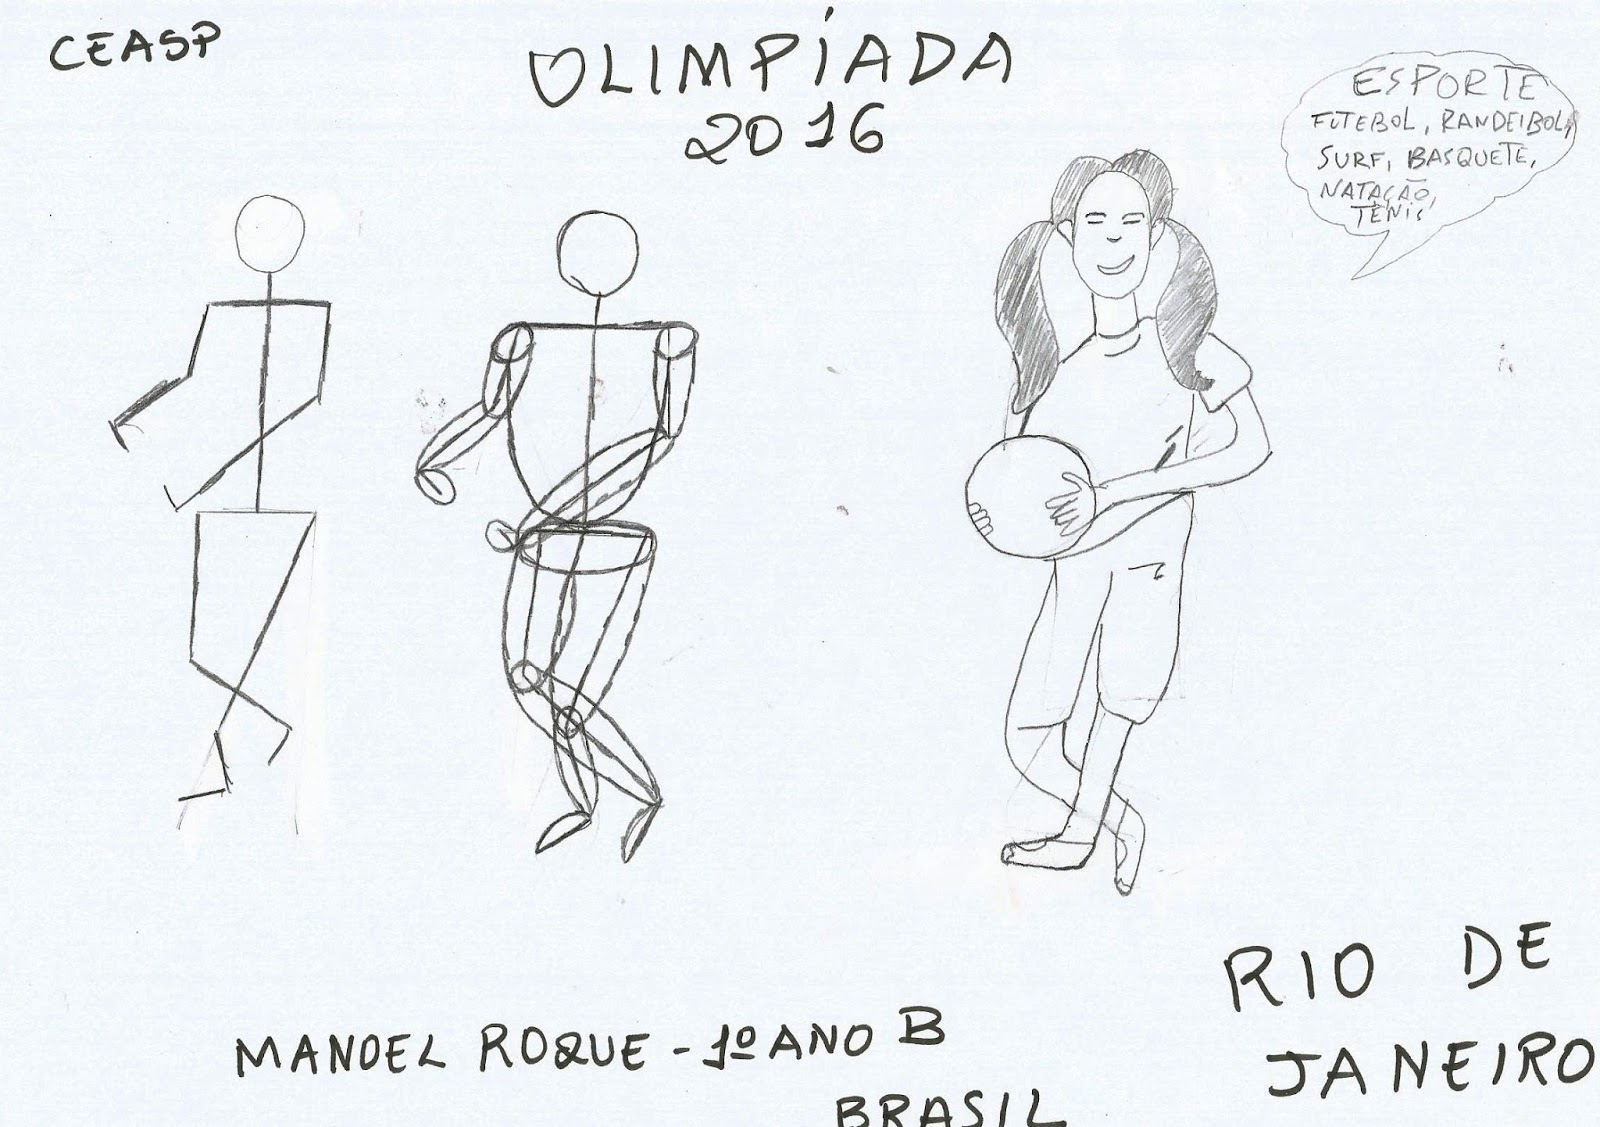 CEASP
OLIMPÍADA
2016
ESPORTE
FUTEBOL, RANDEIBOL,
SURF, BASQUETE,
NATAÇÃO,
TÊNIS
RIO DE
JANEIRO
MANOEL ROQUE - 1º ANO B
BRASIL